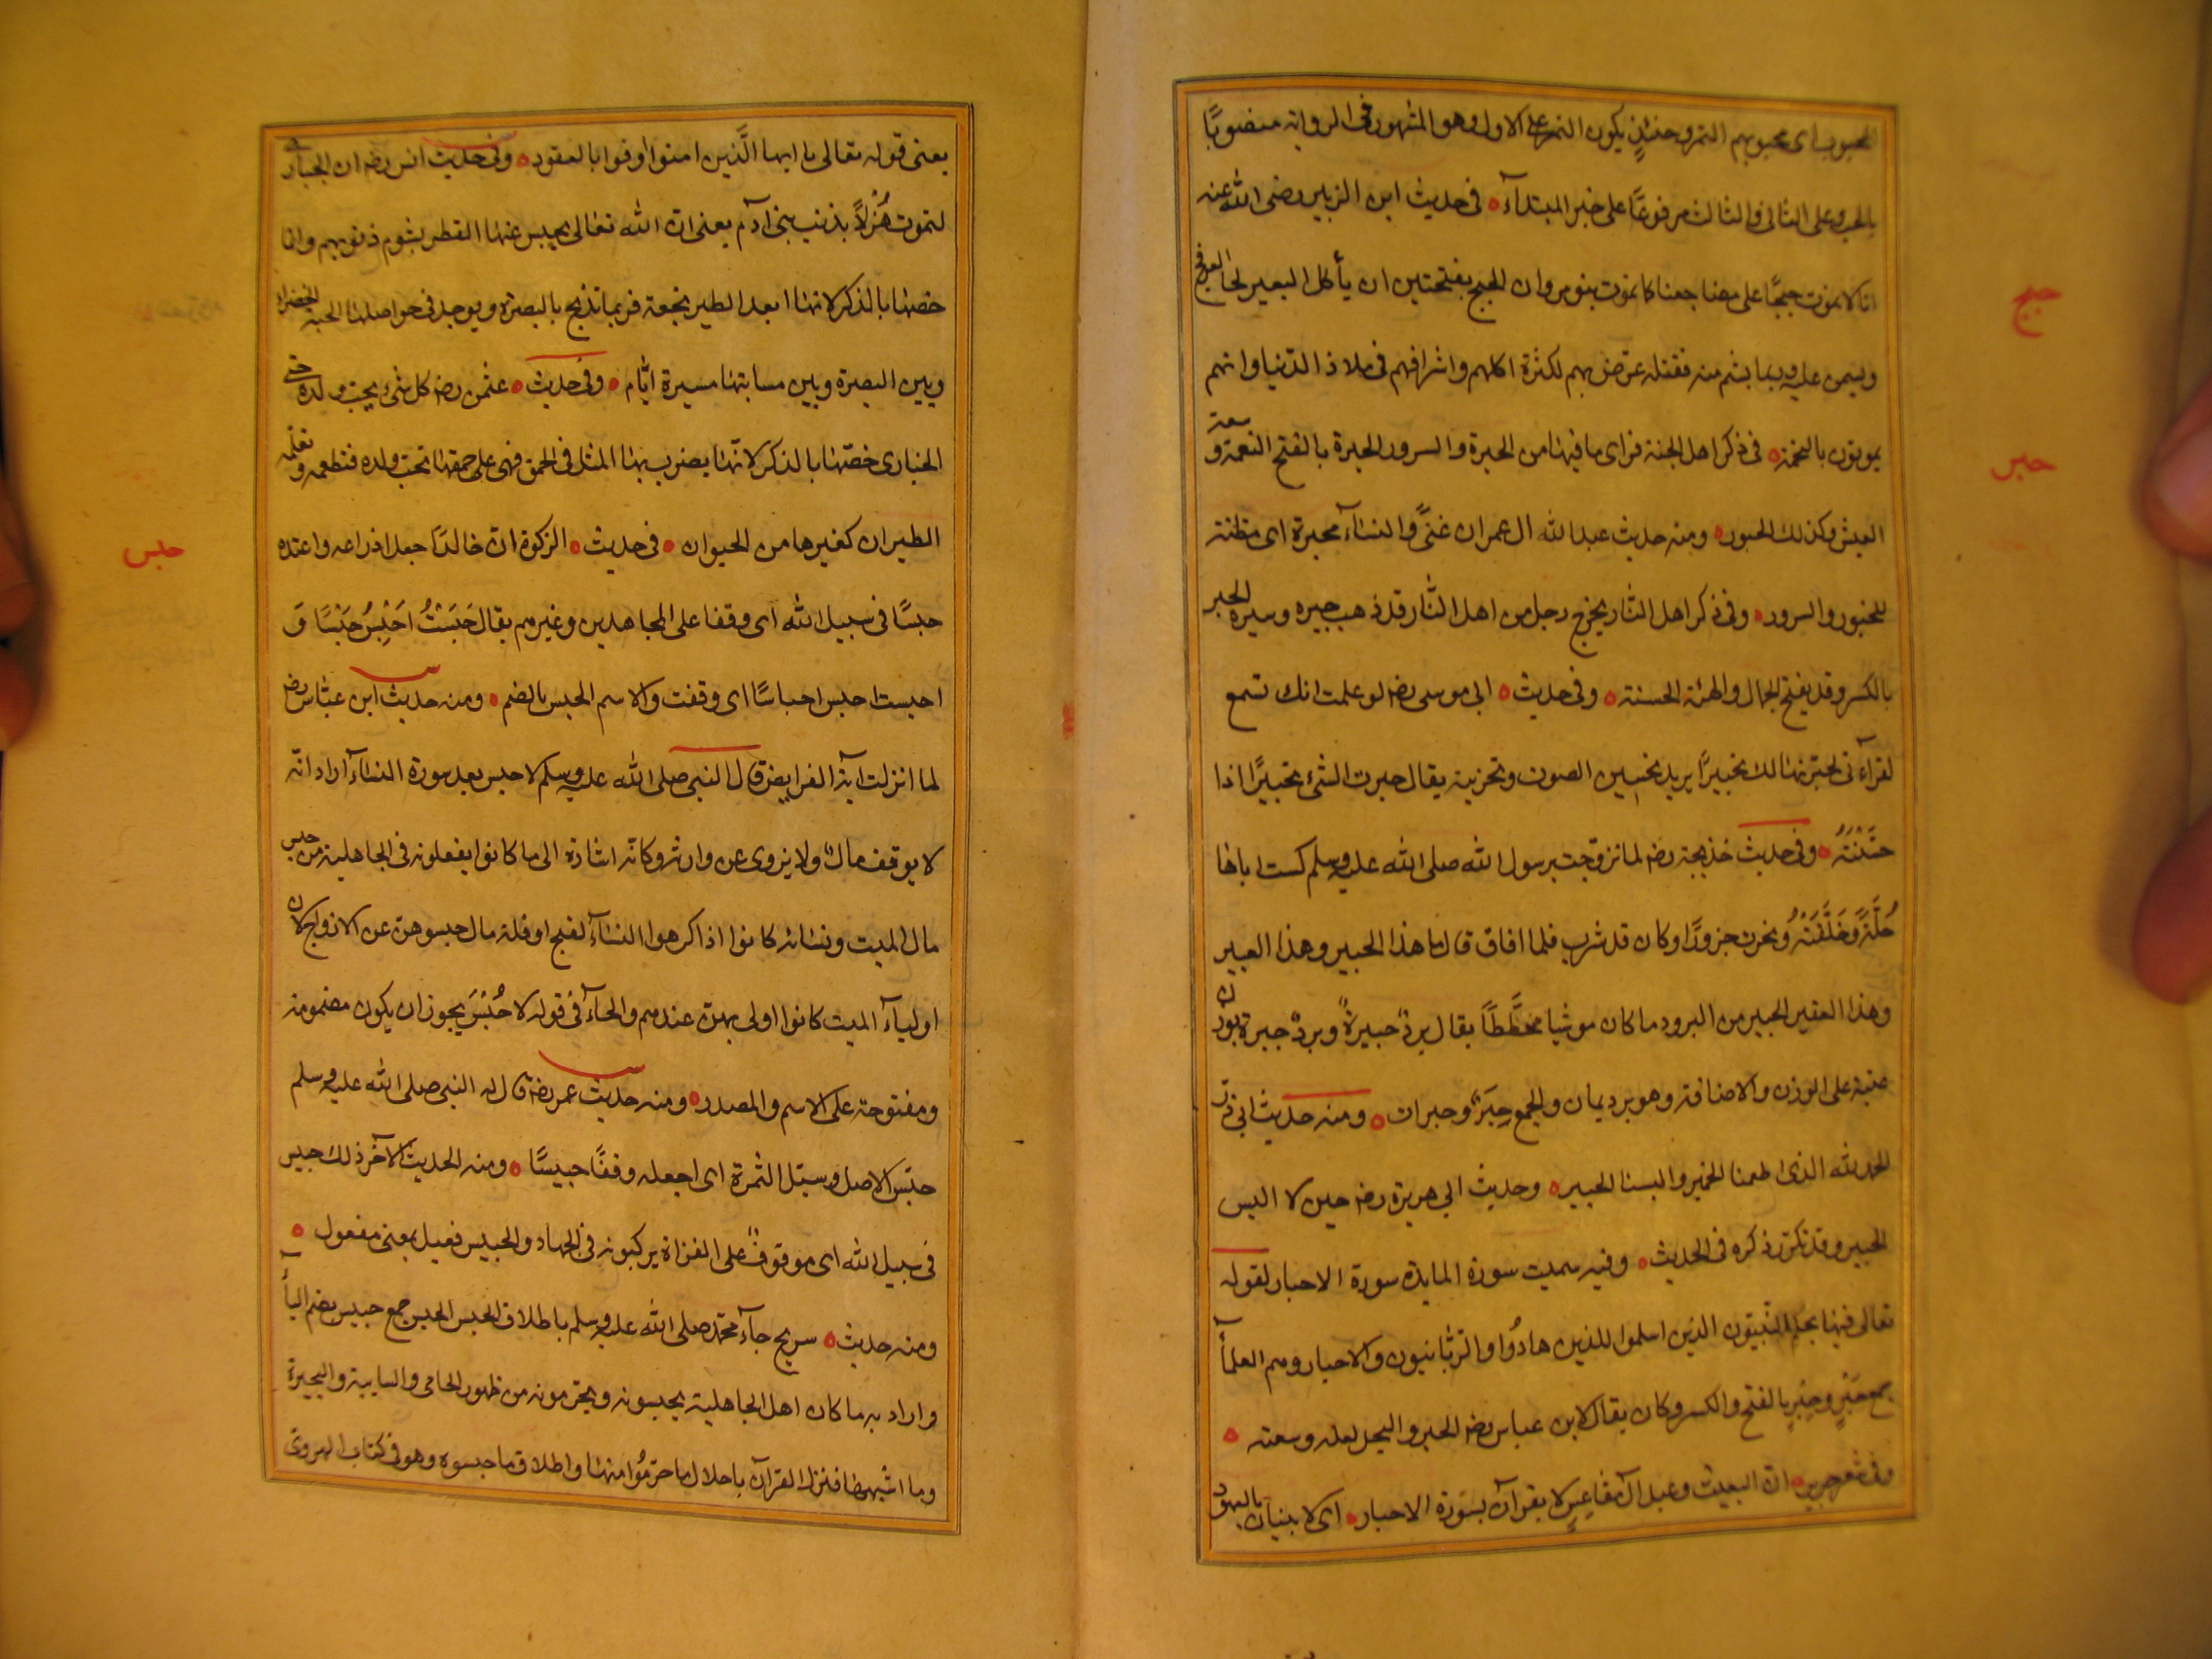 المحبوب اى محبوبهم التمر وحينئذٍ يكون التمر على الاول وهو المشهور فى الرواية منصوبًا
بالحب وعلى الثانى والثالث مرفوعًا على خبر المبتدآء فى حديث ابن الزبير رضى الله عنه
حبج
انا لا نموت حبجًا على مضاجعنا كما يموت بنو مروان الحبج بفتحتين ان يأكل البعير لحا العرفج
ويسمن عليه وربما بشم منه فقتله عرّض بهم لكثرة اكلهم واشرافهم فى ملاذ الدّنيا وانهم
حبر
يموتون بالتخمة فى ذكر اهل الجنة فراى ما فيها من الحبرة والسرور الحبرة بالفتح النعمة و سعة
العيش وكذلك الحبور ومنه حديث عبد الله ال عمران غنىً والنسآء محبرة اى مظنة
للحبور والسرور وفى ذكر اهل النار يخرج رجل من اهل النّار قد ذهب حبره وسبره الحبر
بالكسر وقد يفتح الجمال والهيئة الحسنة وفى حديث ابى موسى رضه لو علمت انك تسمع
لقرآءتى لحبّرتها لك تحبيرًا يريد تحسين الصوت وتحزينه يقال حبرت الشئ تحبيرًا اذا
حسّنته وفى حديث خديجة رضه لما تزوّجت برسول الله صلى الله عليه وسلم كست اباها
حُلّةً وخَلَّقَتْهُ ونحرت جزورًا وكان قد شرب فلما افاق قال ما هذا الحبير وهذا العبير
وهذا العقير الحبير من البرود ما كان موشيا مخطَّطًا يقال بردٌ حبيرةٌ وبردٌ حبرة بوزن
عنبة على الوزن والاضافة وهو برد يمان والجمع حِبَرٌ وحبرات ومنه حديث ابى ذر
الحمد لله الذى اطعمنا الخمير والبسنا الحبير وحديث ابى هريرة رضه حين لا البس
الحبير وقد تكرّر ذكره فى الحديث وفيه سميت سورة المايدة سورة الاحبار لقوله
تعالى فيها يحكم النّبيّون الذين اسلموا للذين هادُوا والرّبّانيون والاحبار وهم العلمآ
جمع حَبْرٍ وحِبْرٍ بالفتح والكسر وكان يقال لابن عباس رضه الحبر والبحر لعلمه وسعته
وفى شعر جرير انّ البعيث وعبد آل مقاعسٍ لا يقرآن بسورة الاحبار اى لا يفيان بالعهود
يعنى قوله تعالى يا ايها الَّذين امنوا اوفوا بالعقود وفى حديث انس رضه ان الحبارى
لتموت هُزلاً بذنب بنى آدم يعنى انّ الله تعالى يحبس عنها القطر بشوم ذنوبهم وانما
خصّها بالذكر لانها ابعد الطير نجعة فربما تذبح بالبصرة ويوجد فى حواصلها الحبة الخضرا
وبين البصرة وبين منابتها مسيرة ايّام وفى حديث عثمن رضه كل شئ يحب ولده حتى
الحبارى خصّها بالذكر لانّها يضرب بها المثل فى الحمق فهى على حمقها تحب ولده فتطعمه و تعلّمه
حبس
الطيران كغيرها من الحيوان فى حديث الزكوة انّ خالدًا جعل اذراعه واعتده
حبسًا فى سبيل الله اى وقفا على المجاهدين وغيرهم يقال حَبَسْتُ اَحْبِسُ حَبْسًا وَ
احبست احبس احباسًا اى وقفت والاسم الحبس بالضم ومنه حديث ابن عبّاس رض
لما انزلت آية الفرايض قال النبى صلى الله عليه وسلم لا حبس بعد سورة النسآء اراد انّه
لا يوقف مالٌ ولا يزوى عن وارثه وكانّه اشارة الى ما كانوا يفعلونه فى الجاهلية من حبس
مال الميت ونسائه كانوا اذا كرهوا النسآء لقبح او قلة مال حبسوهن عن الازواج لان
اوليآء الميت كانوا اولى بهنّ عندهم والحآء فى قوله لا حُبْسَ يجوز ان يكون مضمومة
ومفتوحة على الاسم والمصدر ومنه حديث عمر رضه قال له النبى صلى الله عليه وسلم
حبّس الاصل وسبّل الثمرة اى اجعله وقفًا حبيسًا ومنه الحديث الآخر ذلك حبيس
فى سبيل الله اى موقوفٌ على الغزاة يركبونه فى الجهاد والحبيس فعيل بمعنى مفعول
ومنه حديث سريح جآء محمّد صلى الله عليه وسلم باطلاق الحبس الحبس جمع حبيس بضم البآء
واراد به ما كان اهل الجاهلية يحبسونه ويحرمونه من ظهور الحامى والسايبة والبحيرة
وما اشبهها فنزل القرآن باحلال ما حرّمُوا منها واطلاق ما حبسوه وهو فى كتاب الهروى